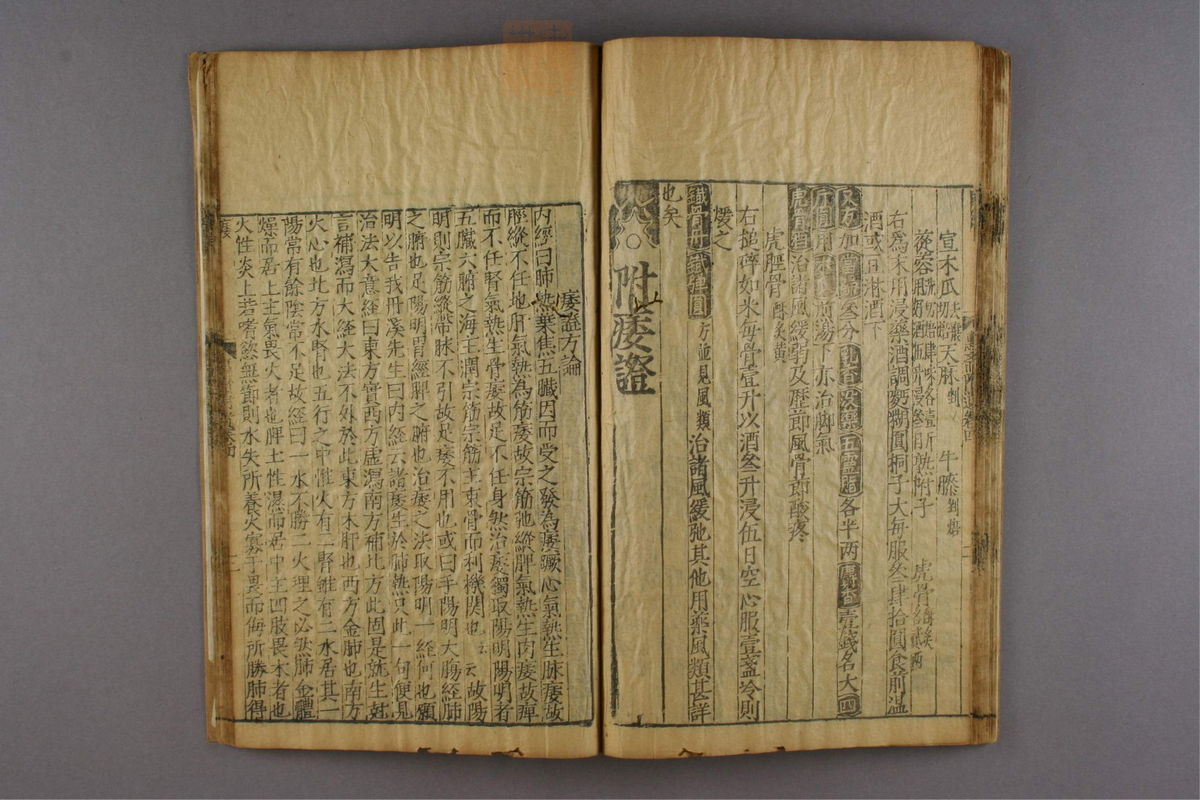 宣木瓜去穰切焙 天麻剉 牛膝剉焙 虎骨
熟附子
右為末用浸藥酒調麪糊圓桐子大每服叁肆拾圓食前溫
酒或 淋酒下
又方加 叁分 沒藥 五靈脂 各半兩 麝香 壹錢名大四
斤圓用 煎湯下亦治脚氣
虎骨 治諸風緩弱及歷節風骨節酸疼
虎脛骨酥炙黄
右搥碎如米每骨壹升以酒叁升浸伍日空心服壹盞冷則
煖之
鐵 方並見風類治諸風緩弛其他用藥風類甚詳
也矣
附痿證
痿證方論
內經曰肺熱葉焦五臟因而受之發為痿蹶心氣熱生脉痿故
脛縱不任地肝氣熱為筋痿故宗筋弛縱脾氣熱生肉痿故痺
而不任腎氣熱生骨痿故足不任身然治痿獨取陽明陽明者
五臟六腑之海主潤宗筋宗筋主束骨而利機関也云云故陽
明則宗筋縱帶脉不引故足痿不用也或曰手陽明大腸經肺
之腑也足陽明胃經脾之腑也治痿之法取陽明一經何也願
明以告我丹溪先生曰內經云諸痿生於肺熱只此一句便見
治法大意經曰東方實西方虛瀉南方補北方此固是就生尅
言補瀉而大經大法不外於此東方木肝也西方金肺也南方
火心也北方水腎也五行之中惟火有二腎雖有二水居其一
陽常有餘陰常不足故經曰一水不勝二火理之必然肺金體
燥而居上主氣畏火者也脾土性濕而居中主四肢畏木者也
火性炎上若嗜慾無節則水失所養火寡于畏而侮所勝肺得